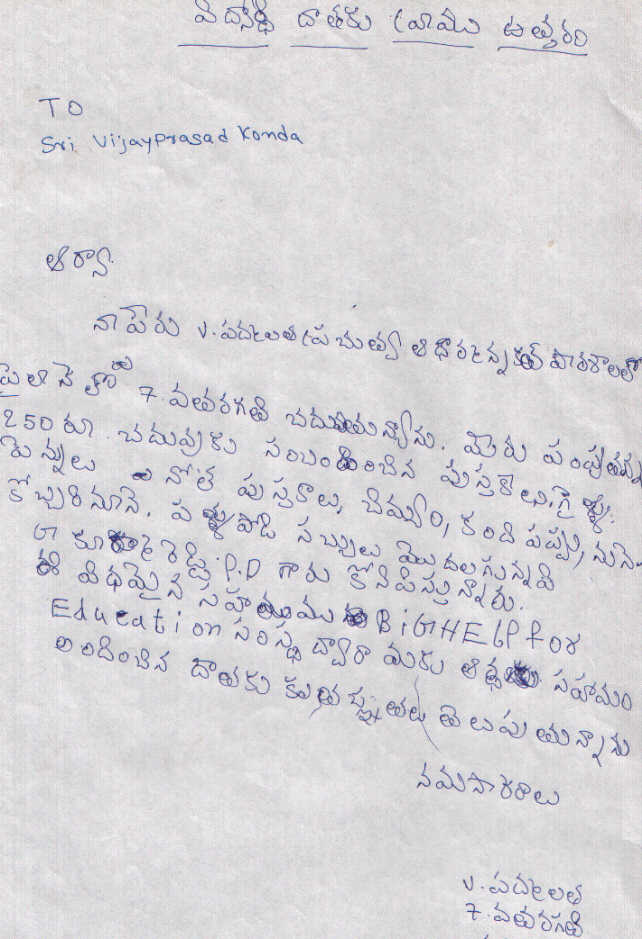 విద్యార్థి దాతకు వ్రాయు ఉత్తరం
TO
Sri VijayPrasad Konda
ఆర్యా
నా పేరు V. పద్మలత ప్రభుత్వ
7. వతరగతి చదువుతున్నాను. మీరు పంపుతున్న
250 రూ. చదువుకు సంబంధించిన పుస్తకాలు,
పెన్నులు నోట్ పుస్తకాలు, బియ్యం, కంది పప్పు, నునె
కొబ్బరినూనె, పళ్ళుపొడి సబ్బులు మొదలగునవి
P.D గారు కొనిపిస్తున్నారు.
ఈ విధమైన సహాయము BiGHELP for
Education సంస్థ ద్వారా మకు ఆర్థిక సహాయం
అందించిన దాతకు కృతజ్ఞతలు తెలుపుతున్నాను
నమస్కారాలు
V. పద్మలత
7. వతరగతి